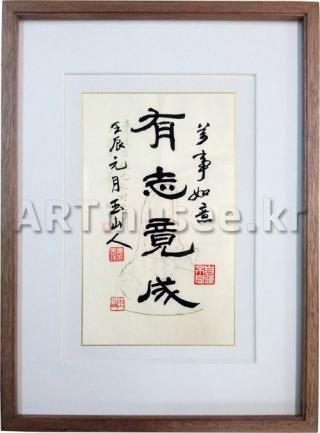 萬事如意
有志竟成
壬辰元月玉山人
ARTmusee.kr